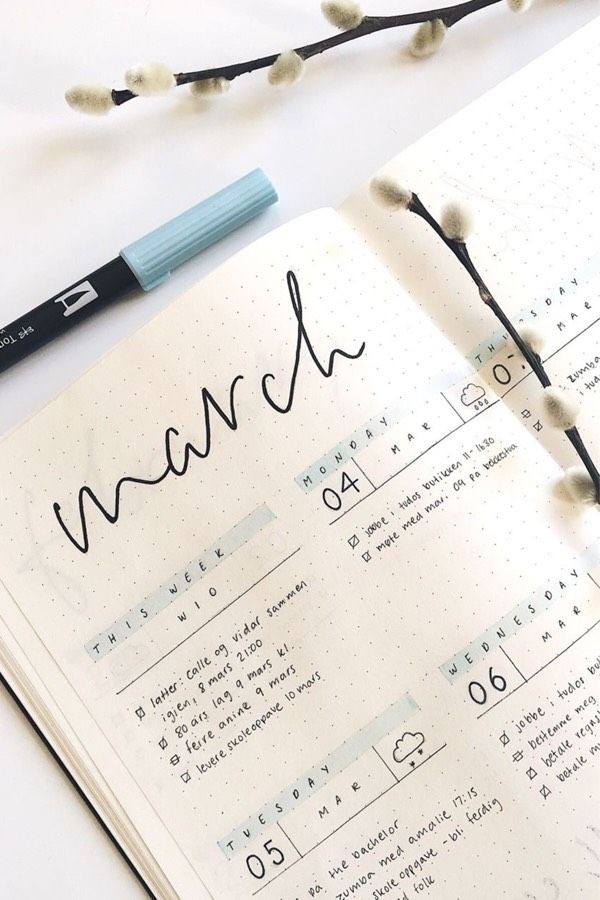 march
THIS WEEK
W10
latter: calle og vidar sammen
igjen, 8 mars 21:00
80 års lag 9 mars kl.
ferre anine 9 mars
levere skoleoppave 10 mars
MONDAY
04 MAR
jobbe i tudos butikken 11-16:30
møte med mari 09 på bekkestua
TUESDAY
05 MAR
på the bachelor
zumba med amalie 17:15
skole oppgave - bli ferdig
med folk
WEDNESDAY
06 MAR
jobbe i tudos
bestemme meg
betale
betale
THURSDAY
07 MAR
zumba
i tudos